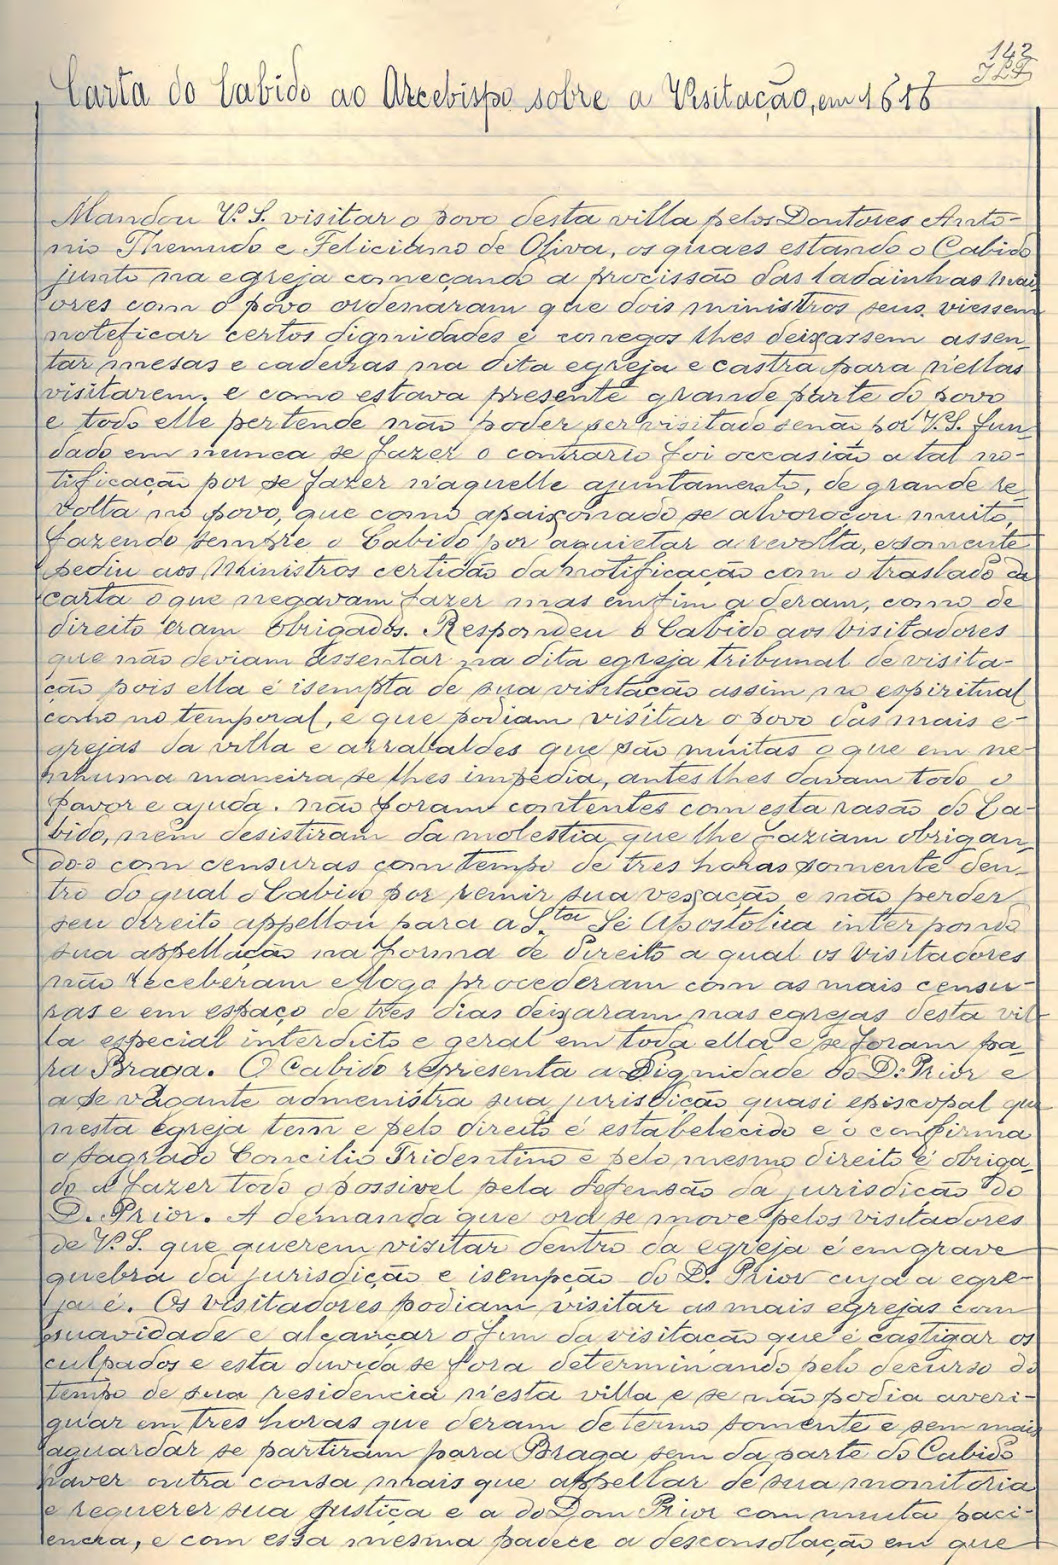 142
Carta do Cabido ao Arcebispo sobre a Visitação, em 1616
Mandou V. S. visitar o povo desta villa pelos Doutores Anto-
nio Themudo e Feliciano de Oliva, os quaes estando o Cabido
junto na egreja começando a procissão das ladainhas mai
ores com o povo ordenaram que dois ministros seus viessem
noteficar certos dignidades e conegos lhes deixassem assen-
tar mesas e cadeiras na dita egreja e castra para n'ellas
visitarem. e como estava presente grande parte do povo
e todo elle pertende não poder ser visitado senão por V. S. fun-
dado em nunca se fazer o contrario foi occasião a tal no-
tificação por se fazer n'aquelle ajuntamento, de grande re-
volta no povo, que como apaixonado se alvoroçou muito,
fazendo sempre o Cabido por aquietar a revolta, e somente
pediu aos Ministros certidão da notificação com o traslado da
carta o que negavam fazer mas emfim a deram, como de
direito eram obrigados. Respondeu o Cabido aos visitadores
que não deviam assentar na dita egreja tribunal de visita-
ção pois ella é isempta de sua visitação assim no espiritual
como no temporal, e que podiam visitar o povo das mais e-
grejas da villa e arrabaldes que são muitas o que em ne-
nhuma maneira se lhes impedia, antes lhes davam todo o
favor e ajuda. não foram contentes com esta rasão do Ca-
bido, nem desistiram da molestia que lhe faziam obrigan-
do-o com censuras com tempo de tres horas somente den-
tro do qual o Cabido por remir sua vexação e não perder
seu direito appellou para a S.ta Sé Apostolica interpondo
sua appellação na forma de direito a qual os visitadores
não receberam e logo procederam com as mais censu-
ras e em espaço de tres dias deixaram nas egrejas desta vil-
la especial interdicto e geral em toda ella e se foram pa-
ra Braga. O Cabido representa a Dignidade do D. Prior e
a se vagante admenistra sua jurisdição quasi episcopal que
nesta egreja tem e pelo direito é estabelecido e o confirma
o sagrado Concilio Tridentino e pelo mesmo direito é obriga-
do a fazer todo o possivel pela defensão da jurisdicão do
D. Prior. A demanda que ora se move pelos visitadores
de V. S. que querem visitar dentro da egreja é em grave
quebra da jurisdição e isempção do D. Prior cuja a egre-
ja é. Os visitadores podiam visitar as mais egrejas com
suavidade e alcançar o fim da visitação que é castigar os
culpados e esta duvida se fora determinando pelo decurso do
tempo de sua residencia n'esta villa e se não podia averi-
guar em tres horas que deram de termo somente e sem mais
aguardar se partiram para Braga sem da parte do Cabido
haver outra cousa mais que appellar de sua monitoria
e requerer sua justiça e a do Dom Prior com muita paci-
encia, e com essa mesma padece a desconsolação em que